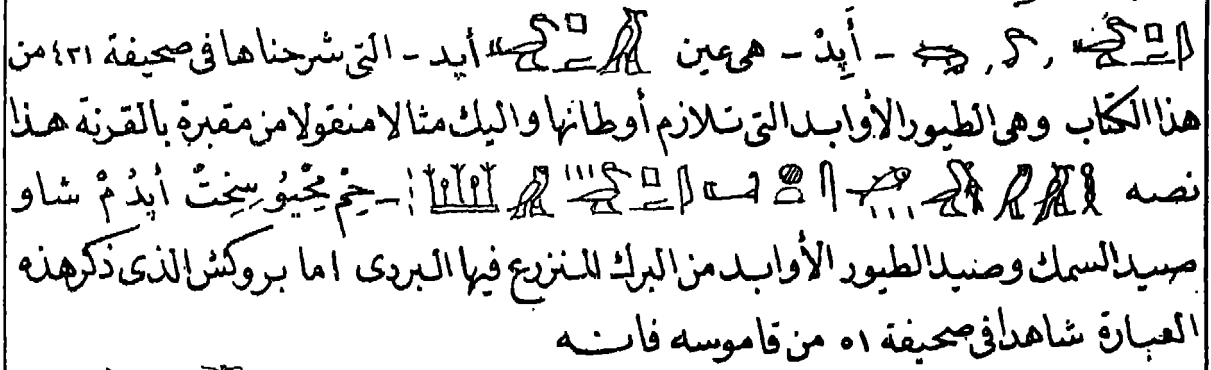 - أَپِدْ - هى عين أپد - التى شرحناها فى صحيفة ٤٢١ من
هذا الكتاب وهى الطيور الأوابد التى تلازم أوطانها واليك مثالا منقولا من مقبرة بالقرنة هذا
نصه - سِخِتْ أپدُ مْ شاو
صيد السمك وصيد الطيور الأوابد من البرك المنزرع فيها البردى اما بروكش الذى ذكر هذه
العبارة شاهدا فى صحيفة ٥١ من قاموسه فانه